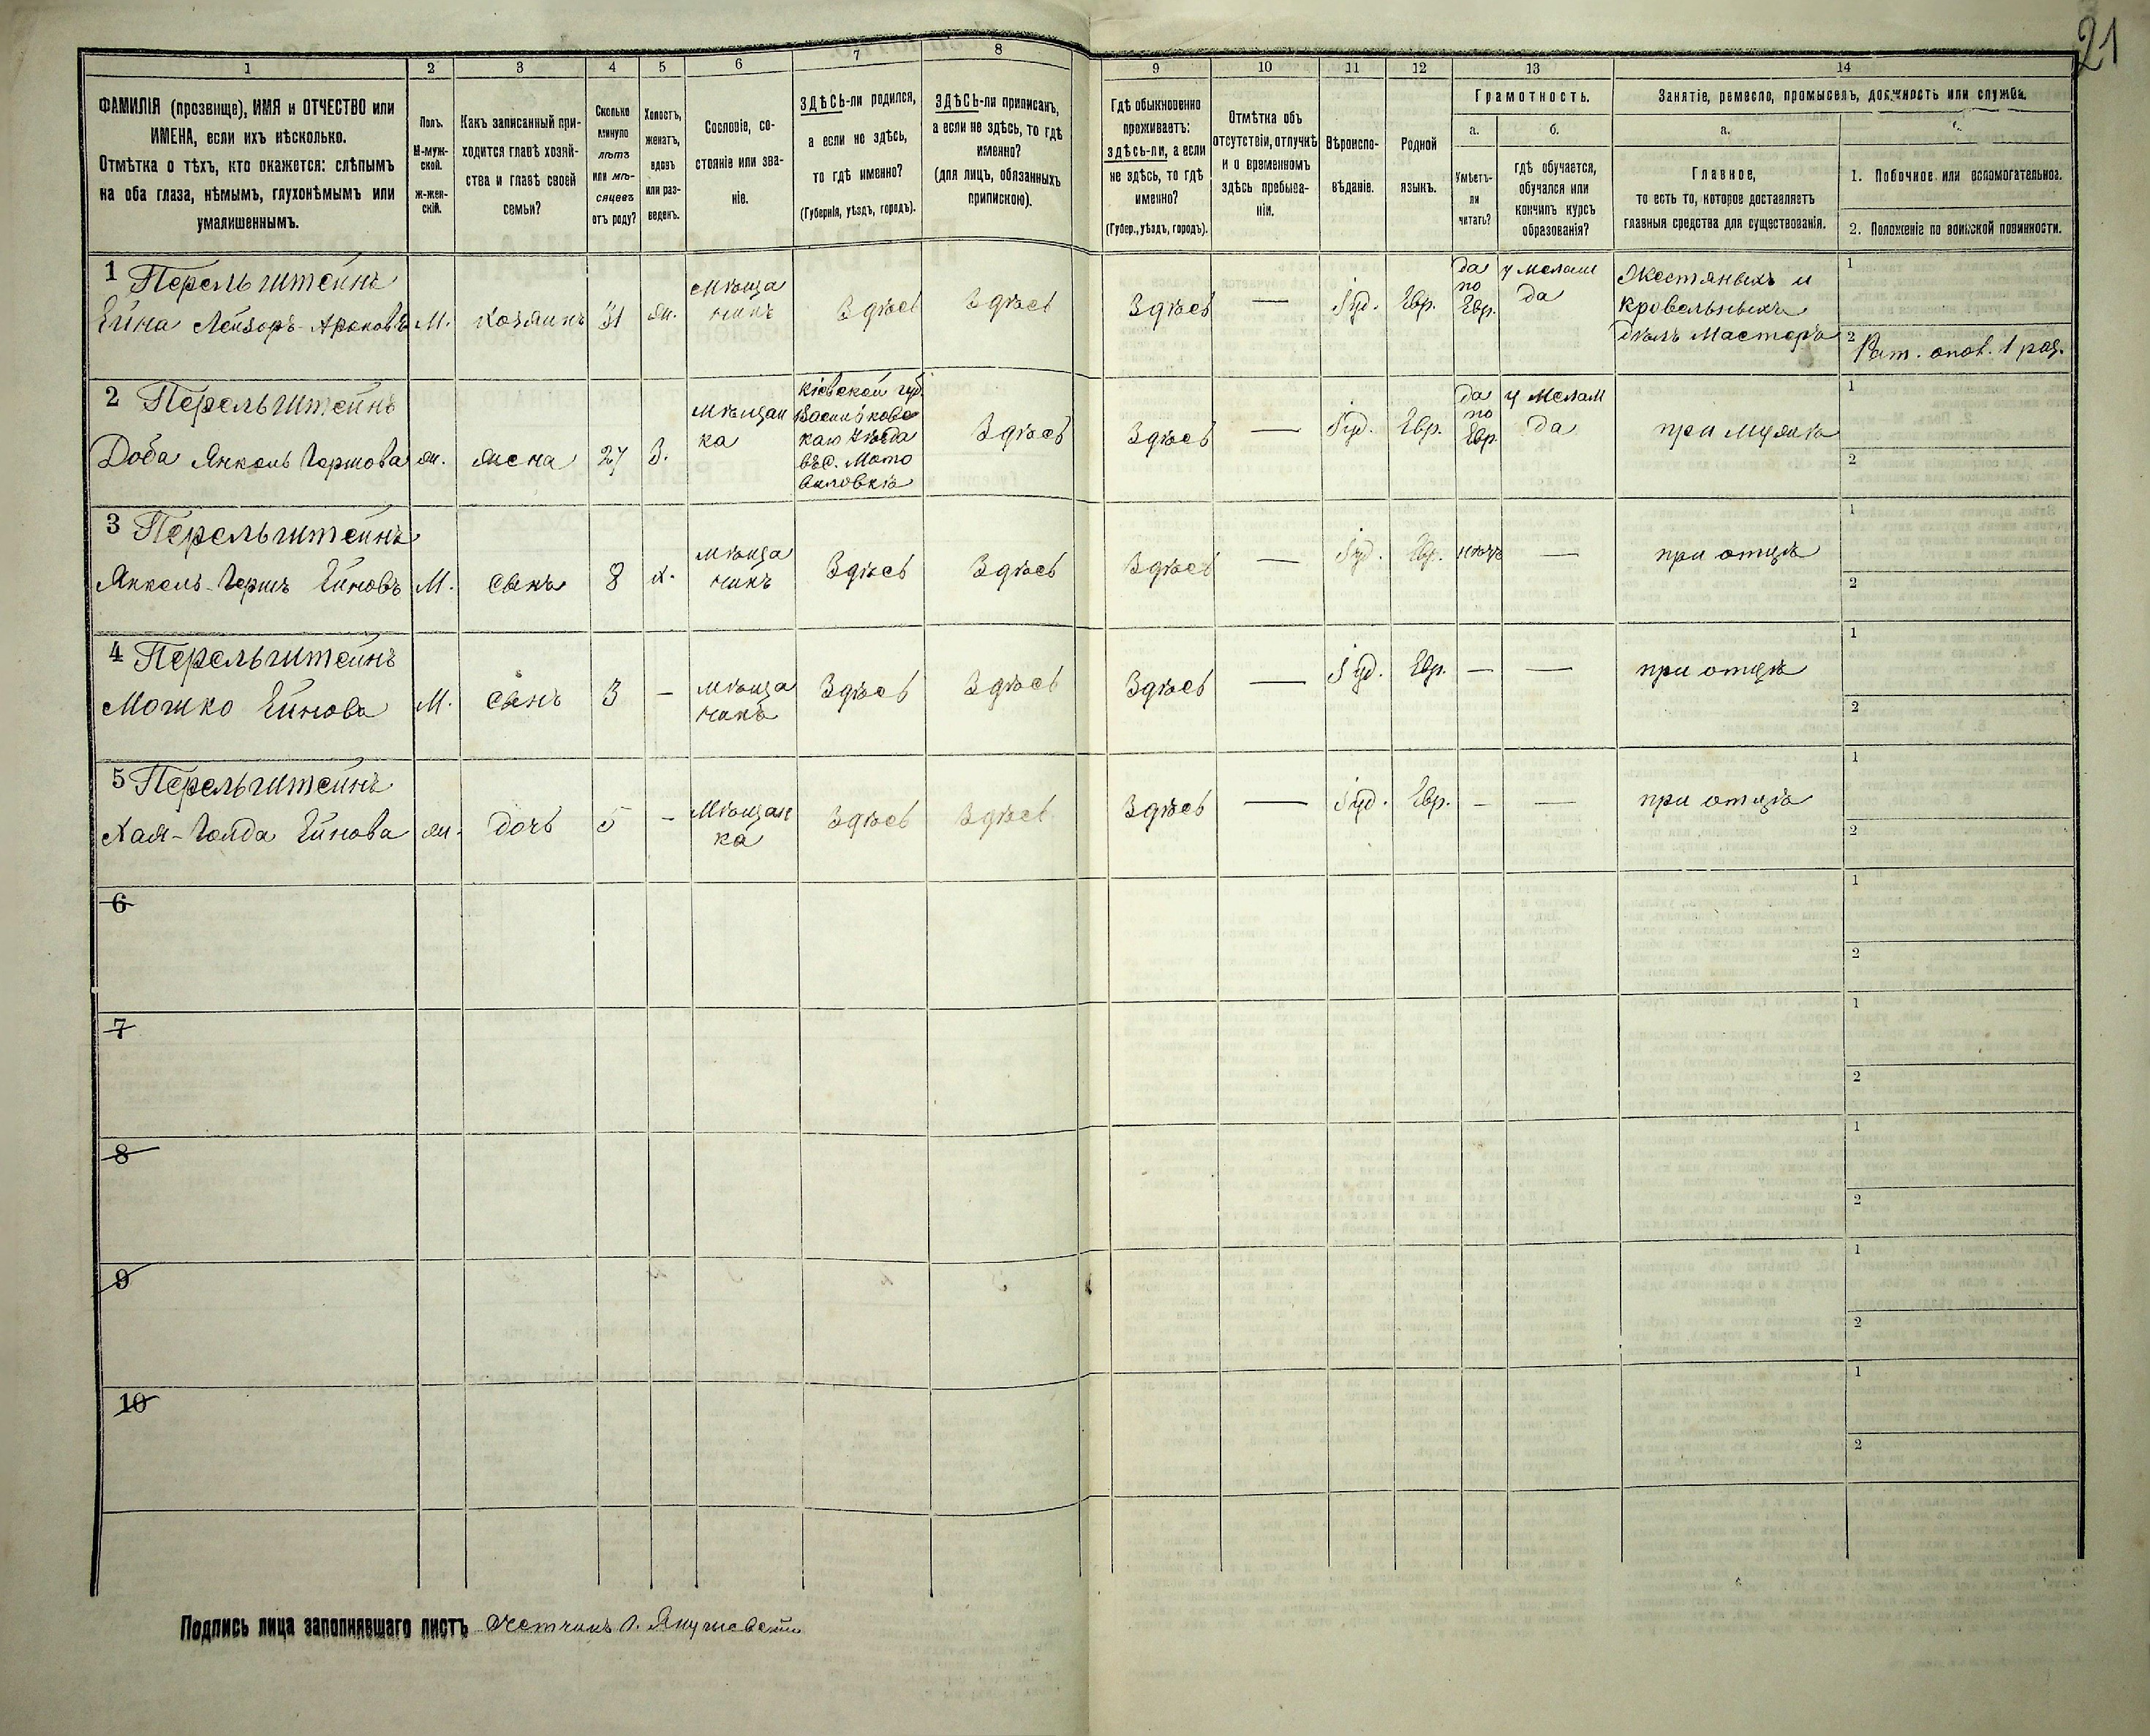 21
1 2 3 4 5 6 7 8 9 10 11 12 13 14
ФАМИЛІЯ (прозвище), ИМЯ и ОТЧЕСТВО или
ИМЕНА, если ихъ нѣсколько.
Отмѣтка о тѣхъ, кто окажется: слѣпымъ
на оба глаза, нѣмымъ, глухонѣмымъ или
умалишеннымъ.
Полъ.
М-муж-
ской.
Ж-жен-
скій.
Какъ записанный при-
ходится главѣ хозяй-
ства и главѣ своей
семьи?
Сколько
минуло
лѣтъ
или мѣ-
сяцевъ
отъ роду?
Холостъ,
женатъ,
вдовъ
или раз-
веденъ.
Сословіе, со-
стояніе или зва-
ніе.
ЗДѢСЬ-ли родился,
а если не здѣсь,
то гдѣ именно?
(Губернія, уѣздъ, городъ).
ЗДѢСЬ-ли приписанъ,
а если не здѣсь, то гдѣ
именно?
(для лицъ, обязанныхъ
припискою).
Гдѣ обыкновенно
проживаетъ:
здѣсь-ли, а если
не здѣсь, то гдѣ
именно?
(Губер., уѣздъ, городъ).
Отмѣтка объ
отсутствіи, отлучкѣ
и о временномъ
здѣсь пребыва-
ніи.
Вѣроиспо-
вѣданіе.
Родной
языкъ.
Грамотность.
а.
Умѣетъ-
ли
читать?
б.
гдѣ обучается,
обучался или
кончилъ курсъ
образованія?
Занятіе, ремесло, промыселъ, должность или служба.
а.
Главное,
то есть то, которое доставляетъ
главныя средства для существованія.
1. Побочное или вспомогательное.
2. Положеніе по воинской повинности.
1 Перельштейнъ
Ейна Лейзоръ-Ароновъ М. хозяинъ 31 ж. мѣща
нинъ Здѣсь Здѣсь Здѣсь — Іуд. Евр. да
по
Евр. у мелам
да Жестяныхъ и
кровельныхъ
дѣлъ Мастеръ
1
2 Рат. опол. 1 раз.
2 Перельштейнъ
Доба Янкель Гершова ж. жена 27 З. мѣщан
ка Кіевской губ.
Васильковс
каго Уѣзда
въ с. Мото
виловкѣ Здѣсь Здѣсь — Іуд. Евр. да
по
Евр. у Мелам
да при мужѣ
1
2
3 Перельштейнъ
Янкель-Гершъ Ейновъ М. сынъ 8 х. мѣща
нинъ Здѣсь Здѣсь Здѣсь — Іуд. Евр. нѣтъ — при отцѣ
1
2
4 Перельштейнъ
Мошко Ейновъ М. сынъ 3 — мѣща
нинъ Здѣсь Здѣсь Здѣсь — Іуд. Евр. — — при отцѣ
1
2
5 Перельштейнъ
Хая-Голда Ейнова ж. дочь 5 — Мѣщан
ка Здѣсь Здѣсь Здѣсь — Іуд. Евр. — — при отцѣ
1
2
6
1
2
7
1
2
8
1
2
9
1
2
10
1
2
Подпись лица заполнявшаго листъ Счетчикъ